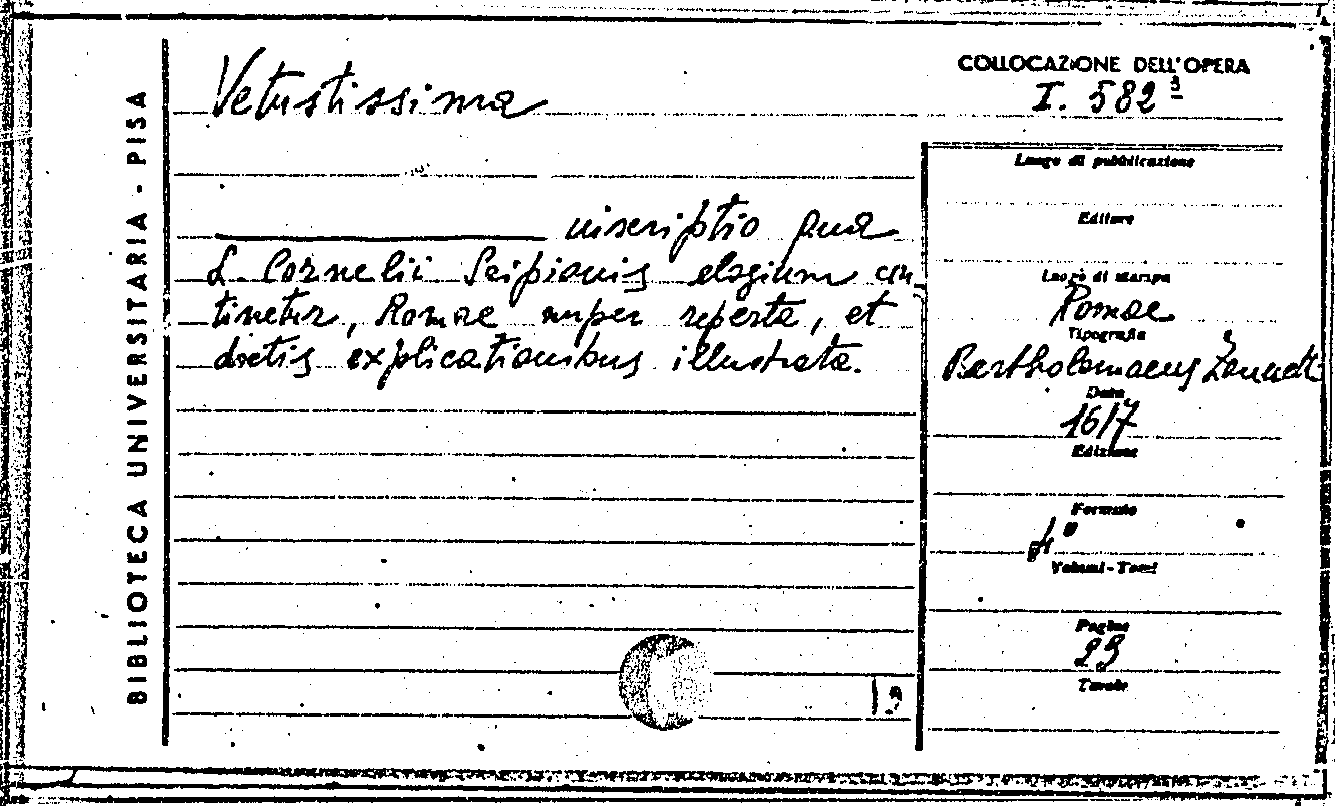 BIBLIOTECA UNIVERSITARIA - PISA
Vetustissima
COLLOCAZIONE DELL'OPERA
I. 582 3
inscriptio qua
L. Cornelii Scipionis elogium con
tinetur, Romae nuper reperta, et
doctis explicationibus illustrata.
Luogo di pubblicazione
Editore
Luogo di stampa
Romae
Tipografia
Bartholomaeus Zannetti
Data
1617
Edizione
Formato
4°
Volumi - Tomi
Pagine
23
Tavole